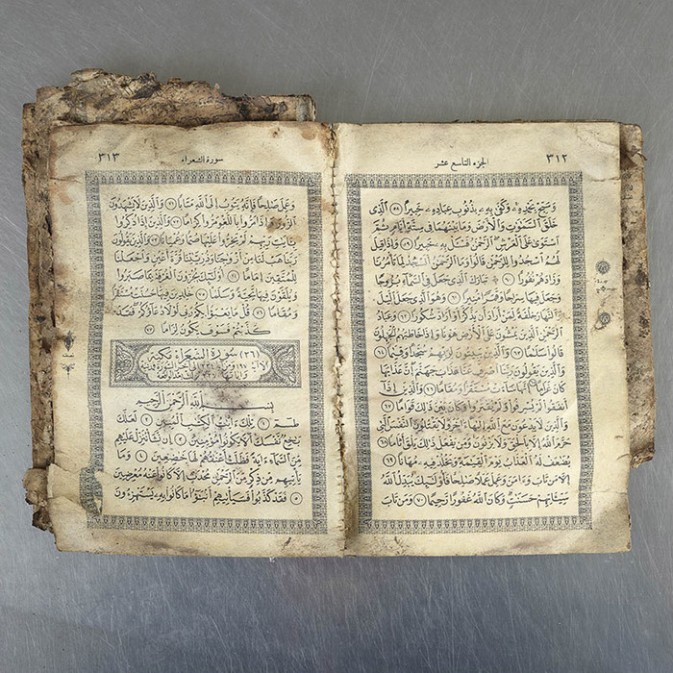 ٣١٢ الجزء التاسع عشر
وَسَبِّحْ بِحَمْدِهِ وَكَفَىٰ بِهِ بِذُنُوبِ عِبَادِهِ خَبِيرًا ٥٨ الَّذِي
خَلَقَ السَّمٰوٰتِ وَالْأَرْضَ وَمَا بَيْنَهُمَا فِي سِتَّةِ أَيَّامٍ ثُمَّ
اسْتَوَىٰ عَلَى الْعَرْشِ الرَّحْمٰنُ فَسْـَٔلْ بِهِ خَبِيرًا ٥٩ وَإِذَا قِيلَ
لَهُمُ اسْجُدُوا لِلرَّحْمٰنِ قَالُوا وَمَا الرَّحْمٰنُ أَنَسْجُدُ لِمَا تَأْمُرُنَا
وَزَادَهُمْ نُفُورًا ٦٠ تَبَارَكَ الَّذِي جَعَلَ فِي السَّمَاءِ بُرُوجًا
وَجَعَلَ فِيهَا سِرَاجًا وَقَمَرًا مُنِيرًا ٦١ وَهُوَ الَّذِي جَعَلَ الَّيْلَ
وَالنَّهَارَ خِلْفَةً لِمَنْ أَرَادَ أَنْ يَذَّكَّرَ أَوْ أَرَادَ شُكُورًا ٦٢ وَعِبَادُ
الرَّحْمٰنِ الَّذِينَ يَمْشُونَ عَلَى الْأَرْضِ هَوْنًا وَإِذَا خَاطَبَهُمُ الْجٰهِلُونَ
قَالُوا سَلٰمًا ٦٣ وَالَّذِينَ يَبِيتُونَ لِرَبِّهِمْ سُجَّدًا وَقِيٰمًا ٦٤
وَالَّذِينَ يَقُولُونَ رَبَّنَا اصْرِفْ عَنَّا عَذَابَ جَهَنَّمَ إِنَّ عَذَابَهَا
كَانَ غَرَامًا ٦٥ إِنَّهَا سَاءَتْ مُسْتَقَرًّا وَمُقَامًا ٦٦ وَالَّذِينَ إِذَا
أَنْفَقُوا لَمْ يُسْرِفُوا وَلَمْ يَقْتُرُوا وَكَانَ بَيْنَ ذٰلِكَ قَوَامًا ٦٧
وَالَّذِينَ لَا يَدْعُونَ مَعَ اللّٰهِ إِلٰهًا ءَاخَرَ وَلَا يَقْتُلُونَ النَّفْسَ الَّتِي
حَرَّمَ اللّٰهُ إِلَّا بِالْحَقِّ وَلَا يَزْنُونَ وَمَنْ يَفْعَلْ ذٰلِكَ يَلْقَ أَثَامًا ٦٨
يُضٰعَفْ لَهُ الْعَذَابُ يَوْمَ الْقِيٰمَةِ وَيَخْلُدْ فِيهِ مُهَانًا ٦٩
إِلَّا مَنْ تَابَ وَءَامَنَ وَعَمِلَ عَمَلًا صٰلِحًا فَأُولٰئِكَ يُبَدِّلُ اللّٰهُ
سَيِّئَاتِهِمْ حَسَنٰتٍ وَكَانَ اللّٰهُ غَفُورًا رَحِيمًا ٧٠ وَمَنْ تَابَ
سورة الشعراء ٣١٣
وَعَمِلَ صٰلِحًا فَإِنَّهُ يَتُوبُ إِلَى اللّٰهِ مَتَابًا ٧١ وَالَّذِينَ لَا يَشْهَدُونَ
الزُّورَ وَإِذَا مَرُّوا بِاللَّغْوِ مَرُّوا كِرَامًا ٧٢ وَالَّذِينَ إِذَا ذُكِّرُوا
بِـَٔايٰتِ رَبِّهِمْ لَمْ يَخِرُّوا عَلَيْهَا صُمًّا وَعُمْيَانًا ٧٣ وَالَّذِينَ يَقُولُونَ
رَبَّنَا هَبْ لَنَا مِنْ أَزْوٰجِنَا وَذُرِّيّٰتِنَا قُرَّةَ أَعْيُنٍ وَاجْعَلْنَا
لِلْمُتَّقِينَ إِمَامًا ٧٤ أُولٰئِكَ يُجْزَوْنَ الْغُرْفَةَ بِمَا صَبَرُوا
وَيُلَقَّوْنَ فِيهَا تَحِيَّةً وَسَلٰمًا ٧٥ خٰلِدِينَ فِيهَا حَسُنَتْ مُسْتَقَرًّا
وَمُقَامًا ٧٦ قُلْ مَا يَعْبَؤُا بِكُمْ رَبِّي لَوْلَا دُعَاؤُكُمْ فَقَدْ
كَذَّبْتُمْ فَسَوْفَ يَكُونُ لِزَامًا ٧٧
(٢٦) سورة الشعراء مكية
بِسْمِ اللّٰهِ الرَّحْمٰنِ الرَّحِيمِ
طسم ١ تِلْكَ ءَايٰتُ الْكِتٰبِ الْمُبِينِ ٢ لَعَلَّكَ
بٰخِعٌ نَفْسَكَ أَلَّا يَكُونُوا مُؤْمِنِينَ ٣ إِنْ نَشَأْ نُنَزِّلْ عَلَيْهِمْ
مِنَ السَّمَاءِ ءَايَةً فَظَلَّتْ أَعْنٰقُهُمْ لَهَا خٰضِعِينَ ٤ وَمَا
يَأْتِيهِمْ مِنْ ذِكْرٍ مِنَ الرَّحْمٰنِ مُحْدَثٍ إِلَّا كَانُوا عَنْهُ مُعْرِضِينَ
٥ فَقَدْ كَذَّبُوا فَسَيَأْتِيهِمْ أَنْبٰٓؤُا مَا كَانُوا بِهِ يَسْتَهْزِءُونَ